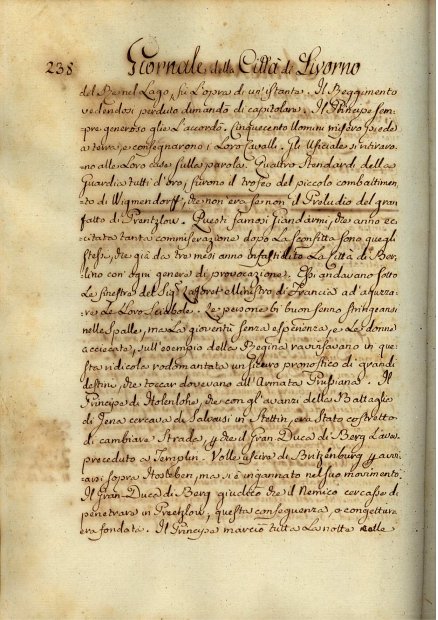 238 Giornale della Città di Livorno
del Bernel Lago, fù l'opra di un istante. Il Reggimento
vedendosi perduto dimandò di capitolare. Il Principe sem-
pre generoso glie l'accordò. Cinquecento Uomini misero piede
a terra, e consegnarono i Loro Cavalli. Gli Ufficiali si ritirava-
no alle Loro Case sulla parola. Quattro Stendardi della
Guardia tutti d'oro, furono il trofeo del piccolo combattimen-
to di Wigmendorff, che non era se non il Preludio del gran
fatto di Prentzlow. Questi famosi Giandarmi, che anno ec-
citata tanta commiserazione dopo La sconfitta sono quegli
stessi, che già da tre mesi anno infastidito La Città di Ber-
lino con ogni genere di provocazione. Essi andavano sotto
Le finestre del Sig.r Laforet Ministro di Francia ad aguzza-
re Le Loro Sciabole. Le persone di buon senno stringeansi
nelle spalle, ma La gioventù senza esperienza, e Le donne
acciecate, sull'esempio della Regina ravvisavano in que-
sta ridicola rodomantata un sicuro pronostico di grandi
destini, che toccar dovevano all'Armata Prussiana. Il
Principe di Holenlohe, che con gl'avanzi della Battaglia
di Jena cercava di salvarsi in Stettin, era stato costretto
di cambiare Strada, perche il Gran-Duca di Berg L'avea
preceduto a Templin. Volle uscire di Butzenburg per avvi-
arsi sopra Hasleben, ma si è ingannato nel suo movimento.
Il Gran-Duca di Berg giudicò che il Nemico cercasse di
penetrare in Prentzlow, questa conseguenza, o congettura
era fondata. Il Principe marciò tutta La notte colle